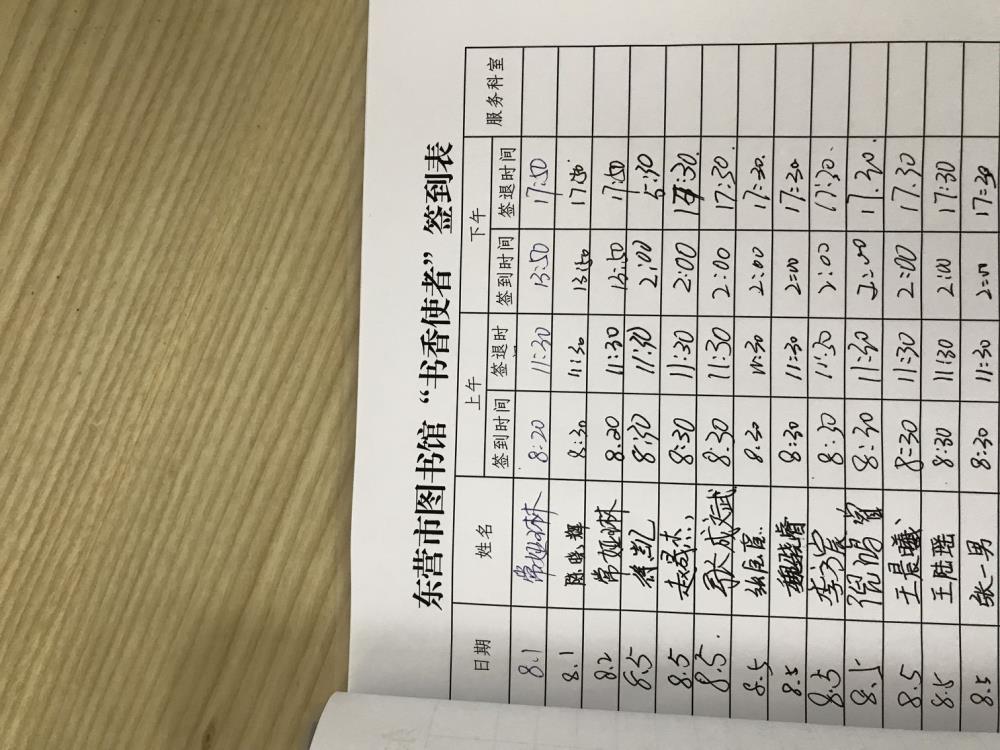 东营市图书馆“书香使者”签到表
日期 姓名 上午 下午 服务科室
签到时间 签退时 签到时间 签退时间
8.1 常姐琳 8:20 11:30 13:50 17:50
8.1 陈晓辉 8:30 11:30 13:50 17:50
8.2 常姐琳 8:20 11:30 13:50 17:50
8.5 8:30 11:30 2:00 5:30
8.5 赵晟杰 8:30 11:30 2:00 17:30
8.5. 成文武 8:30 11:30 2:00 17:30.
8.5 8:30 11:30 2:00 17:30.
8.5 魏晓睿 8:30 11:30 2:00 17:30
8.5 李宸 8:30 11:30 2:00 17:30.
8.5 倪鸣萱 8:30 11:30 2:00 17.30.
8.5 王晨曦 8:30 11:30 2:00 17.30
8.5 王陆瑶 8:30 11:30 2:00 17:30
8.5 张一男 8:30 11:30 2:00 17:30